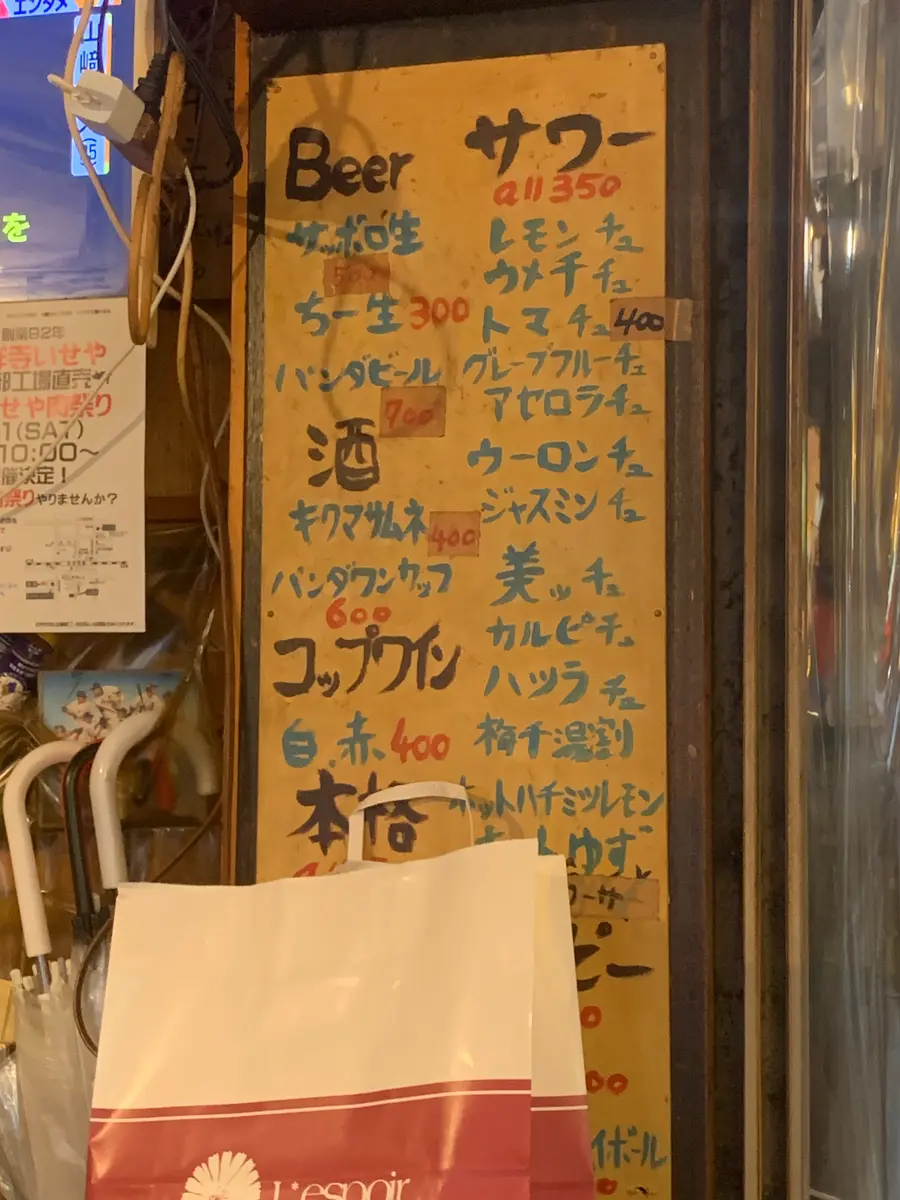 エンタメ
を
創業92年
寺いせや
部工場直売
せや肉祭り
1(SAT)
10:00～
催決定！
祭りやりませんか？
Beer
サッポロ生
500
ちー生300
パンダビール
700
酒
キクマサムネ
400
パンダワンカップ
600
コップワイン
白.赤400
本格
サワー
all 350
レモンチュ
ウメチチュ
トマチュ 400
グレープフルーチュ
アセロラチュ
ウーロンチュ
ジャスミンチュ
美ッチュ
カルピチュ
ハツラチュ
梅干湯割
ホットハチミツレモン
ホットゆず
ワーサー
ピー
0
00
イボール
L'espoir